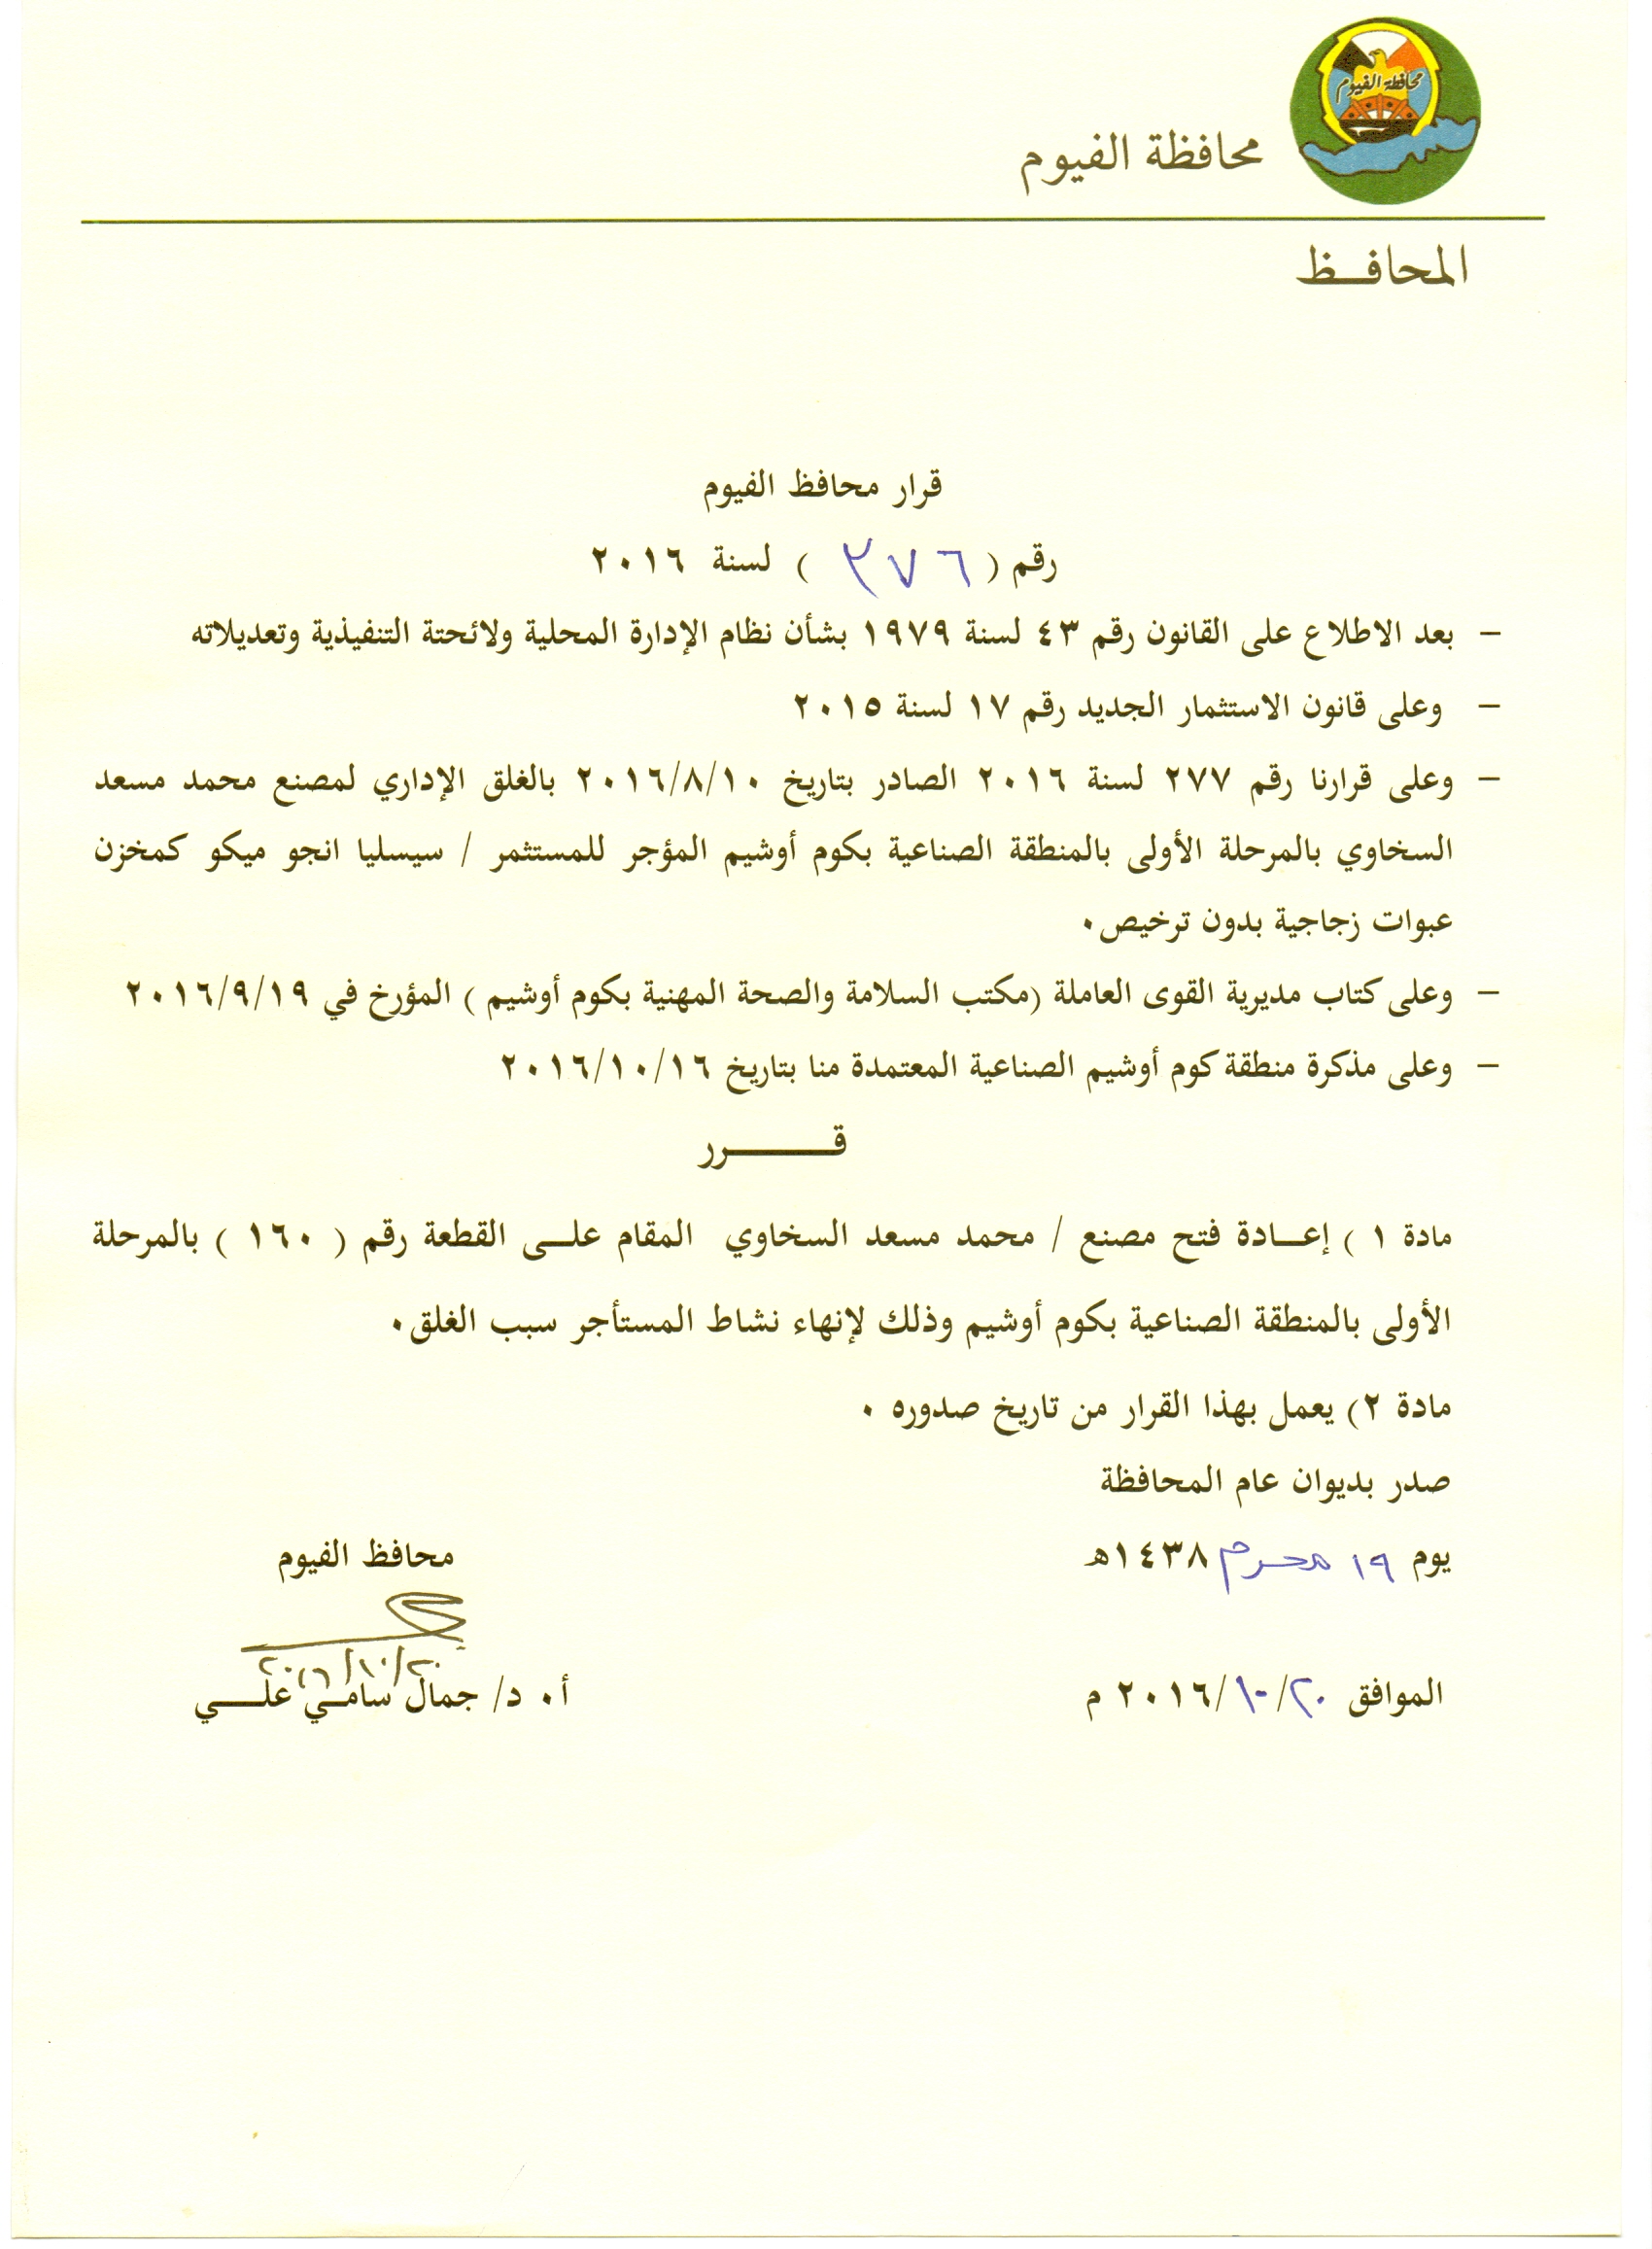 محافظة الفيوم
محافظة الفيوم
المحافــظ
قرار محافظ الفيوم
رقم ( ٣٧٦ ) لسنة ٢٠١٦
– بعد الاطلاع على القانون رقم ٤٣ لسنة ١٩٧٩ بشأن نظام الإدارة المحلية ولائحتة التنفيذية وتعديلاته
– وعلى قانون الاستثمار الجديد رقم ١٧ لسنة ٢٠١٥
– وعلى قرارنا رقم ٢٧٧ لسنة ٢٠١٦ الصادر بتاريخ ٢٠١٦/٨/١٠ بالغلق الإداري لمصنع محمد مسعد
السخاوي بالمرحلة الأولى بالمنطقة الصناعية بكوم أوشيم المؤجر للمستثمر / سيسليا انجو ميكو كمخزن
عبوات زجاجية بدون ترخيص٠
– وعلى كتاب مديرية القوى العاملة (مكتب السلامة والصحة المهنية بكوم أوشيم ) المؤرخ في ٢٠١٦/٩/١٩
– وعلى مذكرة منطقة كوم أوشيم الصناعية المعتمدة منا بتاريخ ٢٠١٦/١٠/١٦
قـــــــرر
مادة ١ ) إعـــادة فتح مصنع / محمد مسعد السخاوي المقام علــى القطعة رقم ( ١٦٠ ) بالمرحلة
الأولى بالمنطقة الصناعية بكوم أوشيم وذلك لإنهاء نشاط المستأجر سبب الغلق٠
مادة ٢) يعمل بهذا القرار من تاريخ صدوره ٠
صدر بديوان عام المحافظة
يوم ١٩ محرم ١٤٣٨هـ
محافظ الفيوم
٢٠١٦/١٠/٢٠
الموافق ٢٠١٦/١٠/٢٠ م
أ٠ د/ جمال سامــي علــــي